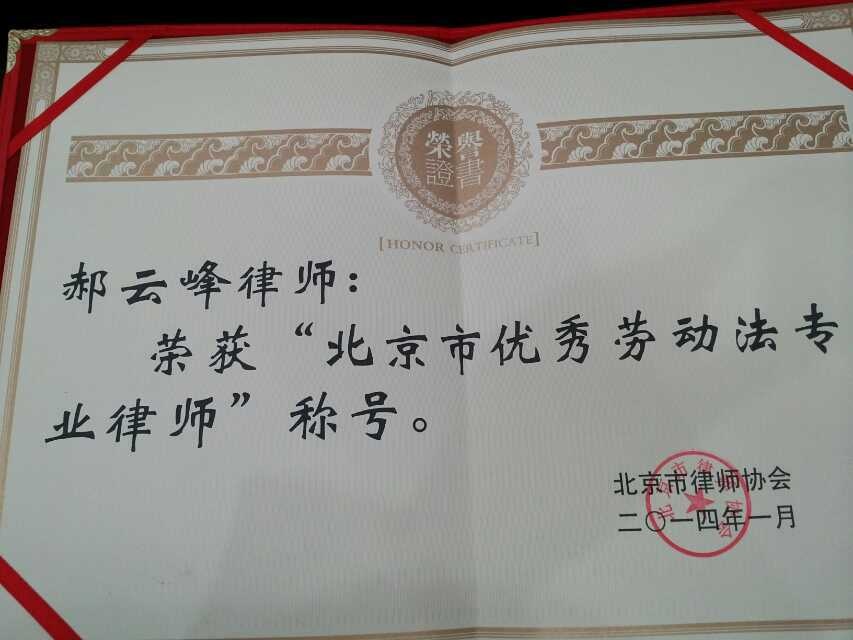 榮譽
證書
[HONOR CERTIFICATE]
郝云峰律师：
荣获“北京市优秀劳动法专
业律师”称号。
北京市律师协会
二〇一四年一月
北京市律师协会